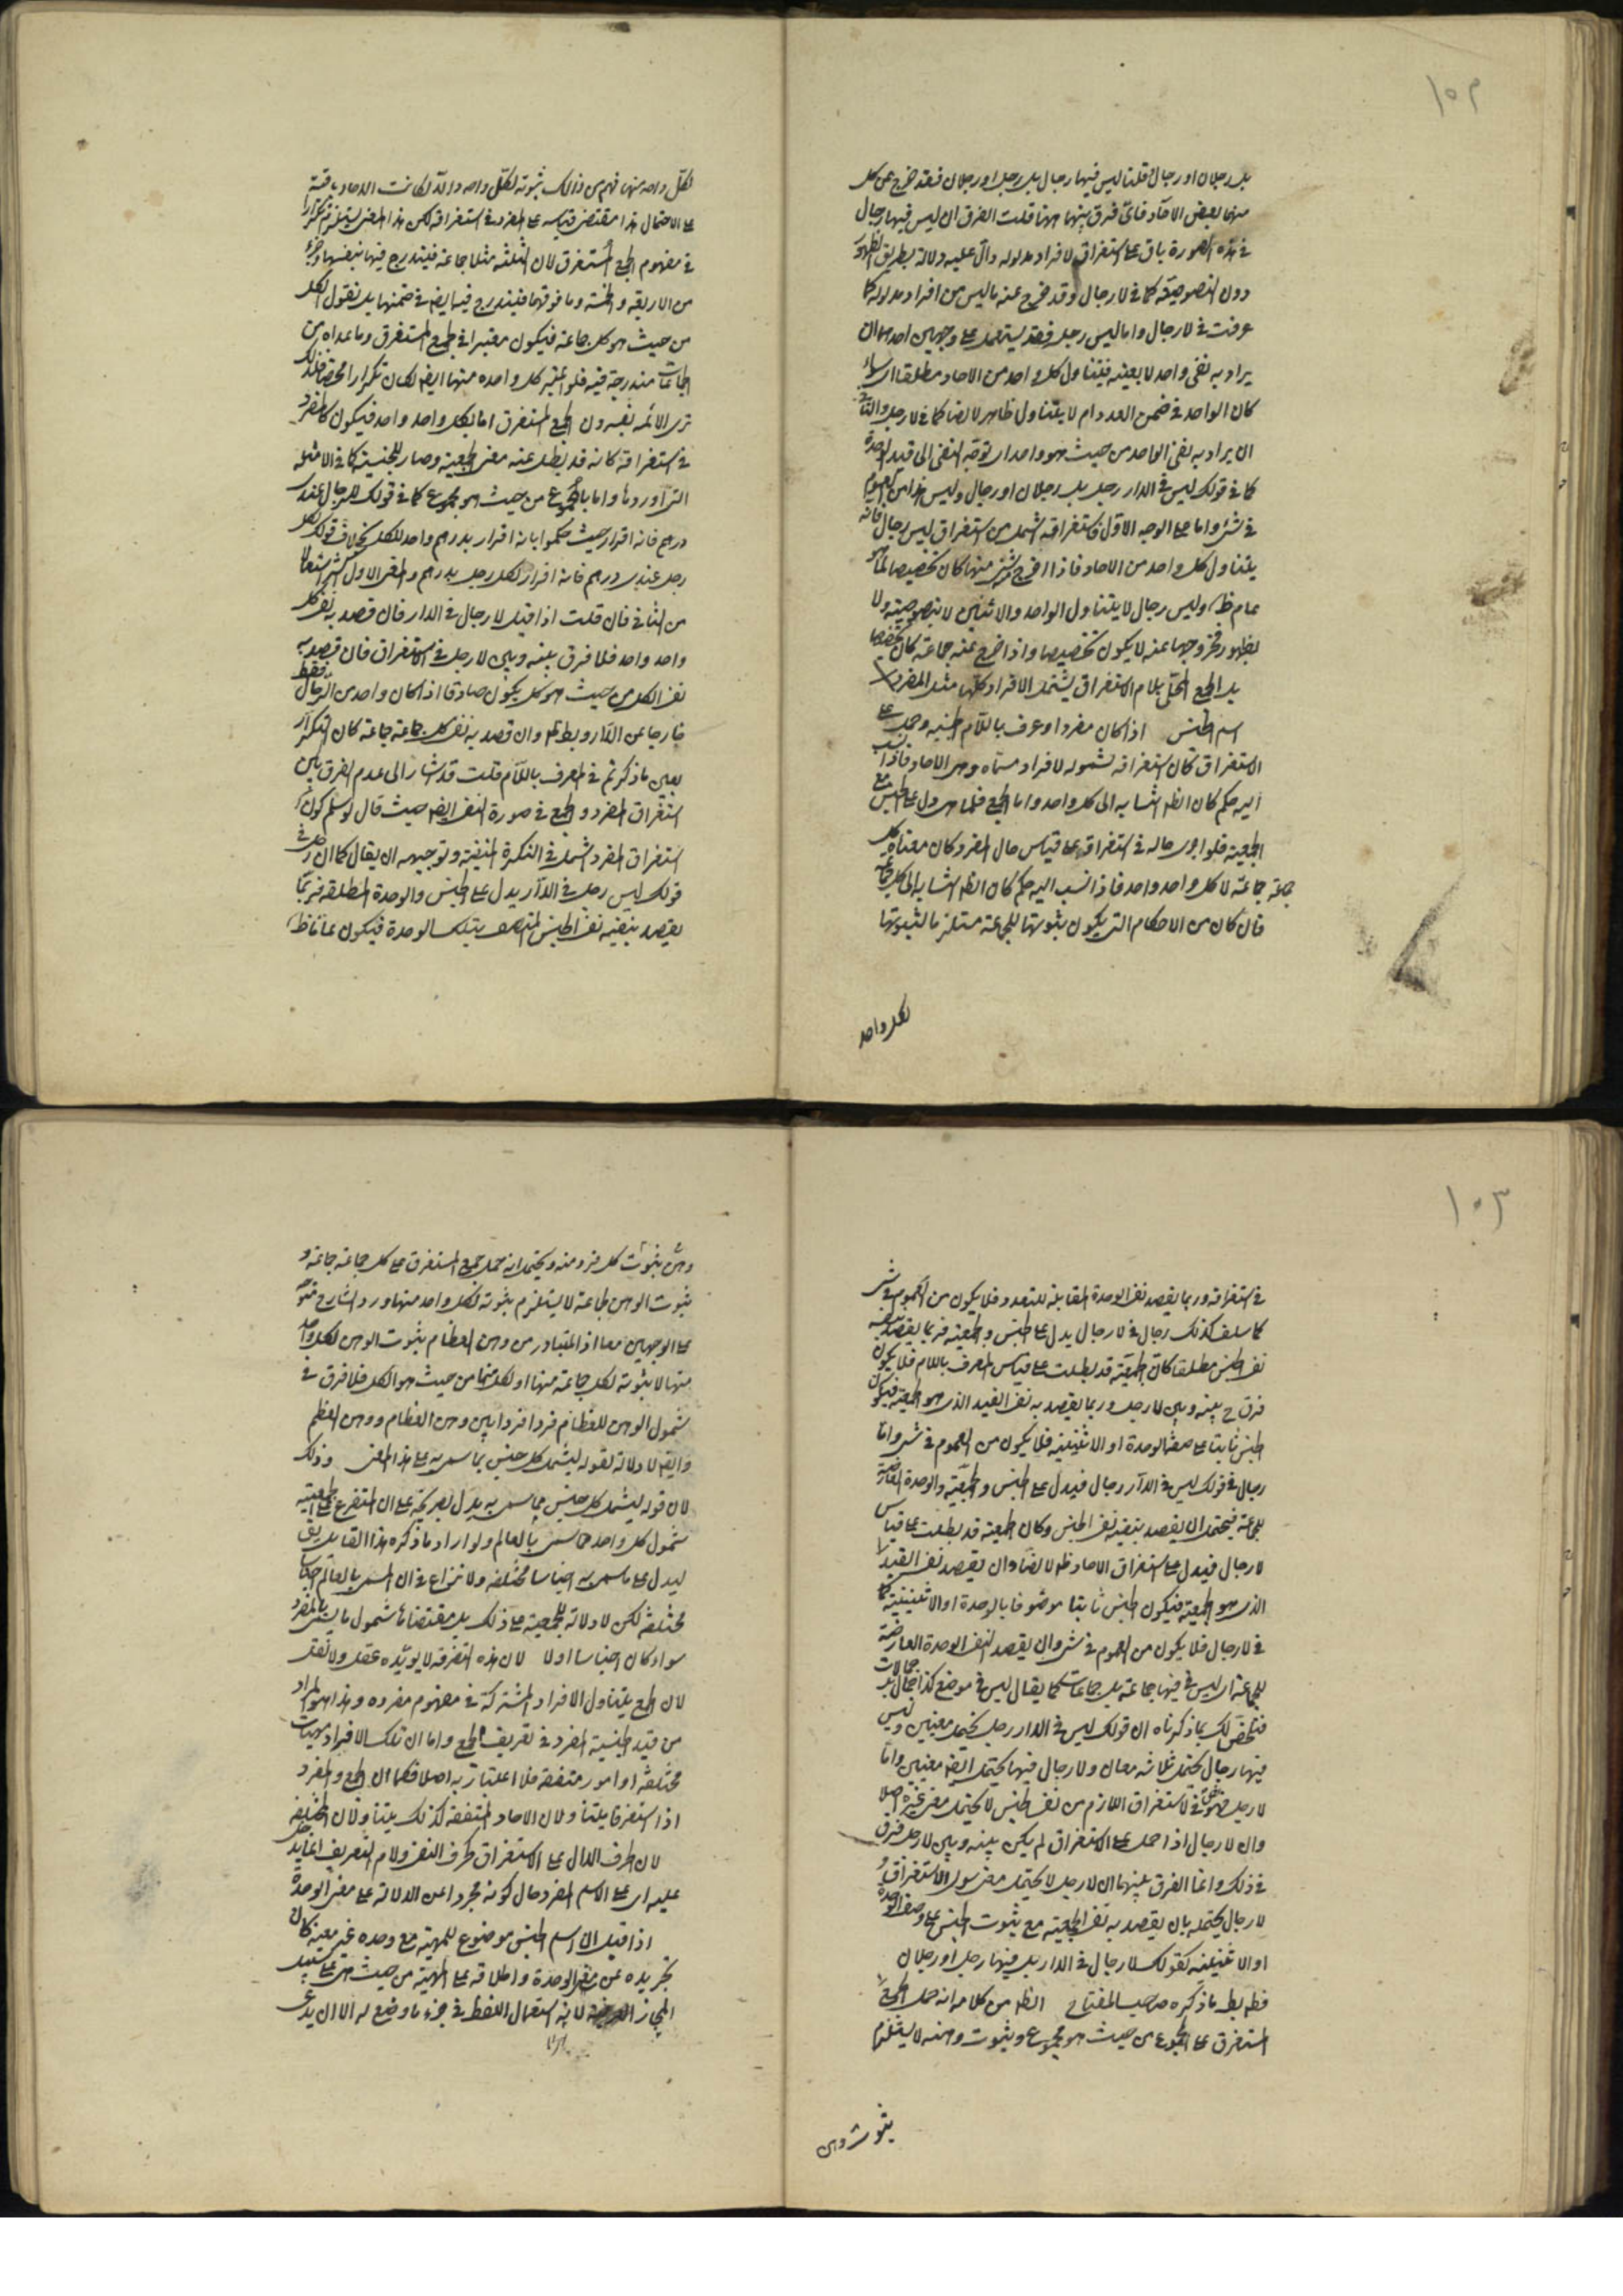 ١٥٢
بل رجلان او رجال قلنا ليس فيها رجال بل رجل او رجلان فقد خرج عن كل
منهما بعض الآحاد فاىّ فرق بينهما ههنا قلت الفرق ان ليس فيها رجال
فى هذه الصورة باق على استغراق لافراد مدلوله دالّ عليه دلالة بطريق الظهور
دون النصوصية كما فى لا رجال وقد خرج عنه ما ليس من افراد مدلوله كما
عرفت فى لا رجال واما ليس رجل فقد يستعمل على وجهين احدهما ان
يراد به نفى واحد لا بعينه فيتناول كل واحد من الاحاد مطلقا اى سواء
كان الواحد فى ضمن العدد ام لا يتناول ظاهرا لا نصا كما فى لا رجل والثانى
ان يراد به نفى الواحد من حيث هو واحد اى توجّه النفى الى قيد الوحدة
كما فى قولك ليس فى الدار رجل بل رجلان او رجال وليس هذا من العموم
فى شئ واما على الوجه الاول فاستغراقه اشمل من استغراق ليس رجال فانه
يتناول كل واحد من الاحاد فاذا اخرج شئ منها كان تخصيصا لما هو
عام ظ وليس رجال لا يتناول الواحد والاثنين لا بنصوصيته ولا
بظهور فخروجهما عنه لا يكون تخصيصا واذا خرج عنه جماعة كان تخصيصا
بل الجمع المحلى بلام الاستغراق يشتمل الافراد كلها مثل المفرد
اسم الجنس اذا كان مفردا وعرف باللام الجنسية وحمل على
الاستغراق كان استغراقه لشموله لافراد مسماه وهى الاحاد فاذا نسب
اليه حكم كان الظ انتسابه الى كل واحد واما الجمع فلما دل على الجنس مع
الجمعية فلو اجرى حاله فى استغراق على قياس حال المفرد كان معناه كل
جماعة جماعة لا كل واحد واحد فاذا نسب اليه حكم كان الظ انتسابه الى كل جماعة
فان كان من الاحكام التى يكون ثبوتها للجماعة مستلزما لثبوتها
لكل واحد
لكل واحد منها فهم من ذلك ثبوته لكل واحد والا لكانت الاحاد باقية
على الاحتمال هذا مقتضى قياسه على المفرد فى استغراقه لكن هذا المعنى يستلزم تكرارا
فى مفهوم الجمع المستغرق لان الثلثة مثلا جماعة فيندرج فيها بنفسها وجزء
من الاربعة والخمسة وما فوقهما فيندرج فيه ايضا فى ضمنها بل نقول الكل
من حيث هو كل جماعة فيكون معتبرا فى الجمع المستغرق وما عداه من
الجماعات مندرجة فيه فلو اعتبر كل واحده منها ايضا لكان تكرارا محضا فلذلك
ترى الائمة يفسرون الجمع المستغرق اما بكل واحد واحد فيكون كالمفرد
فى استغراقه كانه قد بطل عنه معنى الجمعية وصار للجنسية كما فى الامثلة
التى اوردها واما بالمجموع من حيث هو مجموع كما فى قولك للرجال عندى
درهم فانه اقرار حيث حكموا بانه اقرار بدرهم واحد للكل بخلاف قولك لكل
رجل عندى درهم فانه اقرار لكل رجل بدرهم والمعنى الاول اكثر استعمالا
من الثانى فان قلت اذا قيل لا رجال فى الدار فان قصد به نفى كل
واحد واحد فلا فرق بينه وبين لا رجل فى الاستغراق فان قصد به
نفى الكل من حيث هو كل يكون صادقا اذا كان واحد من الرجال فقط
خارجا عن الدار وبط وان قصد به نفى كل جماعة جماعة كان التكرار
بعين ما ذكرتم فى المعرف باللام قلت قد اشار الى عدم الفرق بين
استغراق المفرد والجمع فى صورة النفى ايضا حيث قال لو سلم كون
استغراق المفرد اشمل فى النكرة المنفية وتوجيهه ان يقال كما ان رجل فى
قولك ليس رجل فى الدار يدل على الجنس والوحدة المطلقة فربما
يقصد بنفيه نفى الجنس المتصف بتلك الوحدة فيكون عاما ظ
١٥٣
فى استغراقه وربما يقصد نفى الوحدة المقابلة للتعدد فلا يكون من العموم فى شئ
كما سلف كذلك رجال فى لا رجال يدل على الجنس والجمعية فربما يقصد بنفيه
نفى الجنس مطلقا كان الجمعية قد بطلت على قياس المعرف باللام فلا يكون
فرق ح بينه وبين لا رجل وربما يقصد به نفى القيد الذى هو الجمعية فيكون
الجنس ثابتا على صفة الوحدة او الاثنينية فلا يكون من العموم فى شئ واما
رجال فى قولك ليس فى الدار رجال فيدل على الجنس والجمعية والوحدة العارضة
للجماعة فيحتمل ان يقصد بنفيه نفى الجنس وكان الجمعية قد بطلت على قياس
لا رجال فيدل على استغراق الاحاد ظ لا نصا وان يقصد نفى القيد
الذى هو الجمعية فيكون الجنس ثابتا موصوفا بالوحدة او الاثنينية كما
فى لا رجال فلا يكون من العموم فى شئ وان يقصد نفى الوحدة العارضة
للجماعة اى ليس فيها جماعة بل جماعات كما يقال ليس فى موضع كذا جمال بل جمالات
فتلخص لك بما ذكرناه ان قولك ليس فى الدار رجل يحتمل معنيين وليس
فيها رجال يحتمل ثلاثة معان ولا رجال فيها يحتمل ايضا معنيين واما
لا رجل فهو نص فى الاستغراق اللازم من نفى الجنس لا يحتمل معنى غيره اصلا
وان لا رجال اذا حمل على الاستغراق لم يكن بينه وبين لا رجل فرق
فى ذلك وانما الفرق بينهما ان لا رجل لا يحتمل معنى سوى الاستغراق و
لا رجال يحتمله بان يقصد به نفى الجمعية مع ثبوت الجنس على وصف الوحدة
او الاثنينية كقولك لا رجال فى الدار بل فيها رجل او رجلان
فظ بط ما ذكره صاحب المفتاح الظ من كلامه انه حمل الجمع
المستغرق على المجموع من حيث هو مجموع وثبوت وهنه لا يستلزم
ثبوت وهن
وهن ثبوت كل فرد منه ويحتمل انه حمل الجمع المستغرق على كل جماعة جماعة و
ثبوت الوهن لجماعة لا يستلزم ثبوته لكل واحد منها ورد الشارح قوله
على الوجهين معا اذ المتبادر من وهن العظام ثبوت الوهن لكل واحد
منها لا ثبوته لكل جماعة منها او لكلها من حيث هو الكل فلا فرق فى
شمول الوهن للعظام فردا فردا بين وهن العظام ووهن العظم
وايضا لا دلالة لقوله ليشمل كل جنس بما سمى به على هذا المعنى وذلك
لان قوله ليشمل كل جنس مما سمى به يدل بصريحه على ان المتفرع على الجمعية
شمول كل واحد مما سمى بالعالم ولو اراد ما ذكره هذا القائل يقى
ليدل على ما سمى به اجناسا مختلفة ولا نزاع فى ان المسمى بالعالم اجناس
مختلفة لكن لا دلالة للجمعية على ذلك بل مقتضاها شمول ما يسمى بالمفرد
سواء كان اجناسا اولا لان هذه التفرقة لا يؤيده عقل ولا نقل
لان الجمع يتناول الافراد المشتركة فى مفهوم مفرده وهذا هو المراد
من قيد الجنسية المفرد فى تعريف الجمع واما ان تلك الافراد مهيات
مختلفة او امور متفقة فلا اعتبار به اصلا فكما ان الجمع والمفرد
اذا استغرقا يتناولان الاحاد المتفقة كذلك يتناولان المختلفة
لان الحرف الدال على الاستغراق كحرف النفى ولام التعريف انما يدخل
عليه اى على الاسم المفرد حال كونه مجردا عن الدلالة على معنى الوحدة
اذا قيل ان اسم الجنس موضوع للمهية مع وحده غير معينة كان
تجريده عن معنى الوحدة واطلاقه على المهية من حيث هى على سبيل
المجاز لانه استعمال اللفظ فى جزء ما وضع له الا ان يدعى